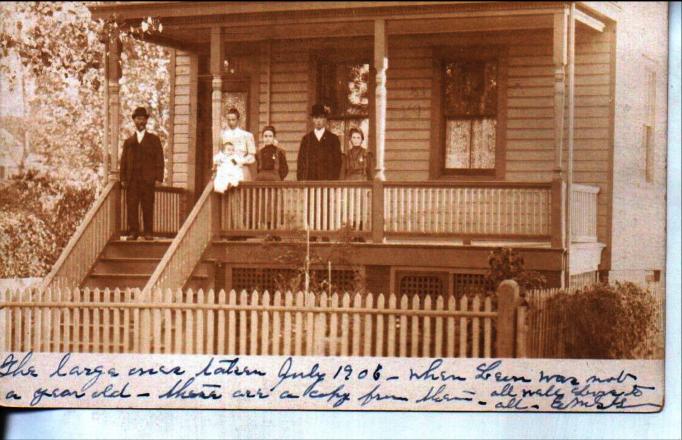 The large ones taken July 1906 - when was not
a year old - these are a copy from them - all
all -